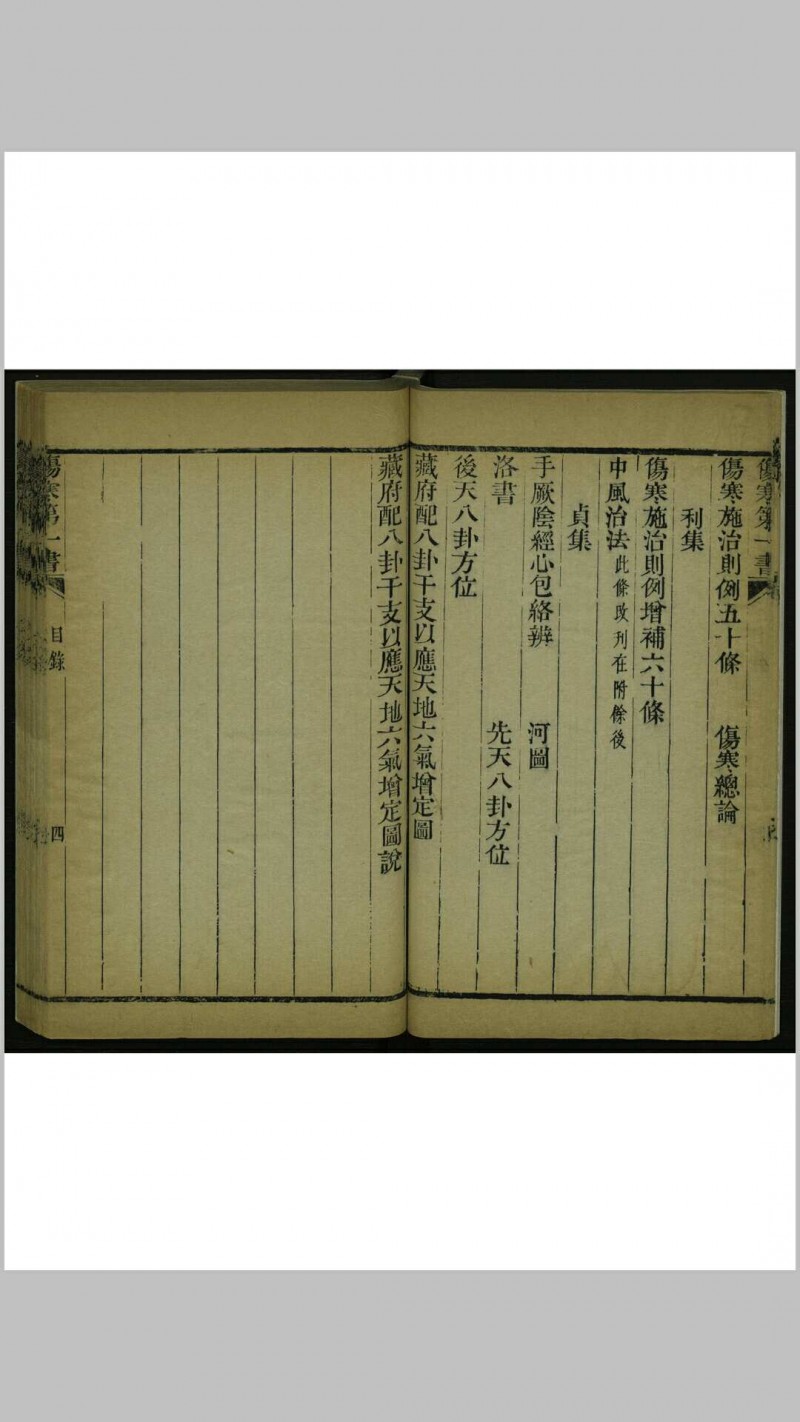 傷寒第一書
傷寒施治則例五十條　傷寒總論
利集
傷寒施治則例增補六十條
中風治法此條改刋在附餘後
貞集
手厥陰經心包絡辨　河圖
洛書　先天八卦方位
後天八卦方位
藏府配八卦干支以應天地六氣增定圖
藏府配八卦干支以應天地六氣增定圖說
傷寒第一書
目錄
四